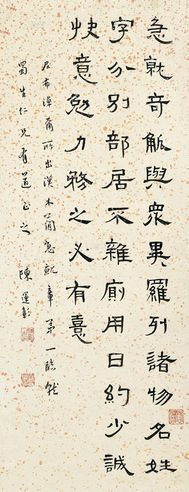 急就奇觚與眾異羅列諸物名姓
字分別部居不雜廁用日約少誠
快意勉力務之必有憙
所出漢木簡急就章第一
蜀生仁兄有道正之 陳運彰